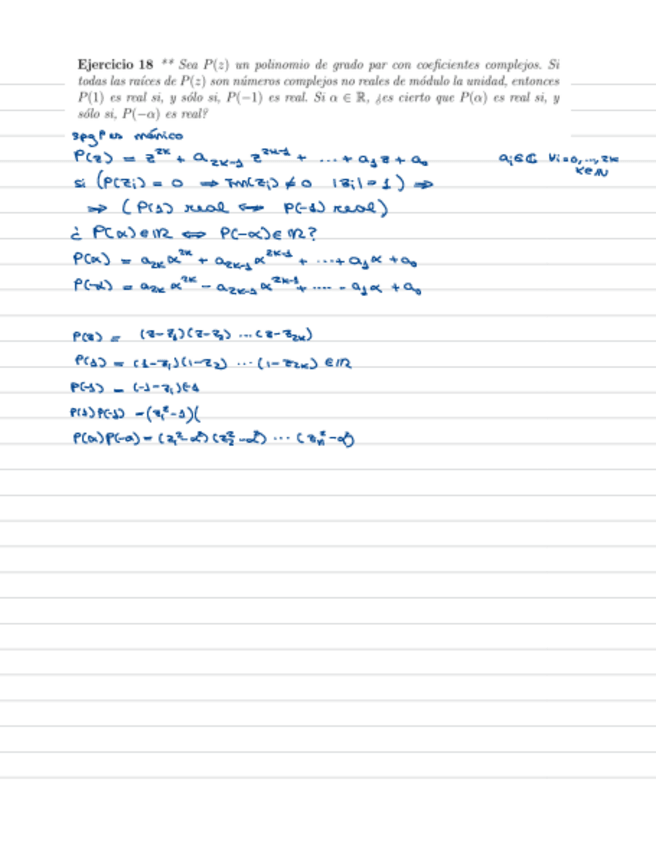 Ejercicio 18 ** Sea P(z) un polinomio de grado par con coeficientes complejos. Si
todas las raíces de P(z) son números complejos no reales de módulo la unidad, entonces
P(1) es real si, y sólo si, P(−1) es real. Si α ∈ ℝ, ¿es cierto que P(α) es real si, y
sólo si, P(−α) es real?
spg P es mónico
P(z) = z^{2k} + a_{2k-1} z^{2k-1} + ... + a_1 z + a_0 a_i ∈ ℂ ∀i=0,...,2k
k∈ℕ
si (P(z_i) = 0 ⇒ Im(z_i) ≠ 0 |z_i| = 1) ⇒
⇒ (P(1) real ⇔ P(-1) real)
¿ P(α) ∈ ℝ ⇔ P(-α) ∈ ℝ?
P(α) = a_{2k} α^{2k} + a_{2k-1} α^{2k-1} + ... + a_1 α + a_0
P(-α) = a_{2k} α^{2k} - a_{2k-1} α^{2k-1} + .... - a_1 α + a_0
P(z) = (z-z_1)(z-z_2) ...(z-z_{2k})
P(1) = (1-z_1)(1-z_2) ... (1-z_{2k}) ∈ ℝ
P(-1) = (-1-z_1)(-1
P(1)P(-1) = (z_1^2-1)(
P(α)P(-α) = (z_1^2-α^2)(z_2^2-α^2) ... (z_n^2-α^2)